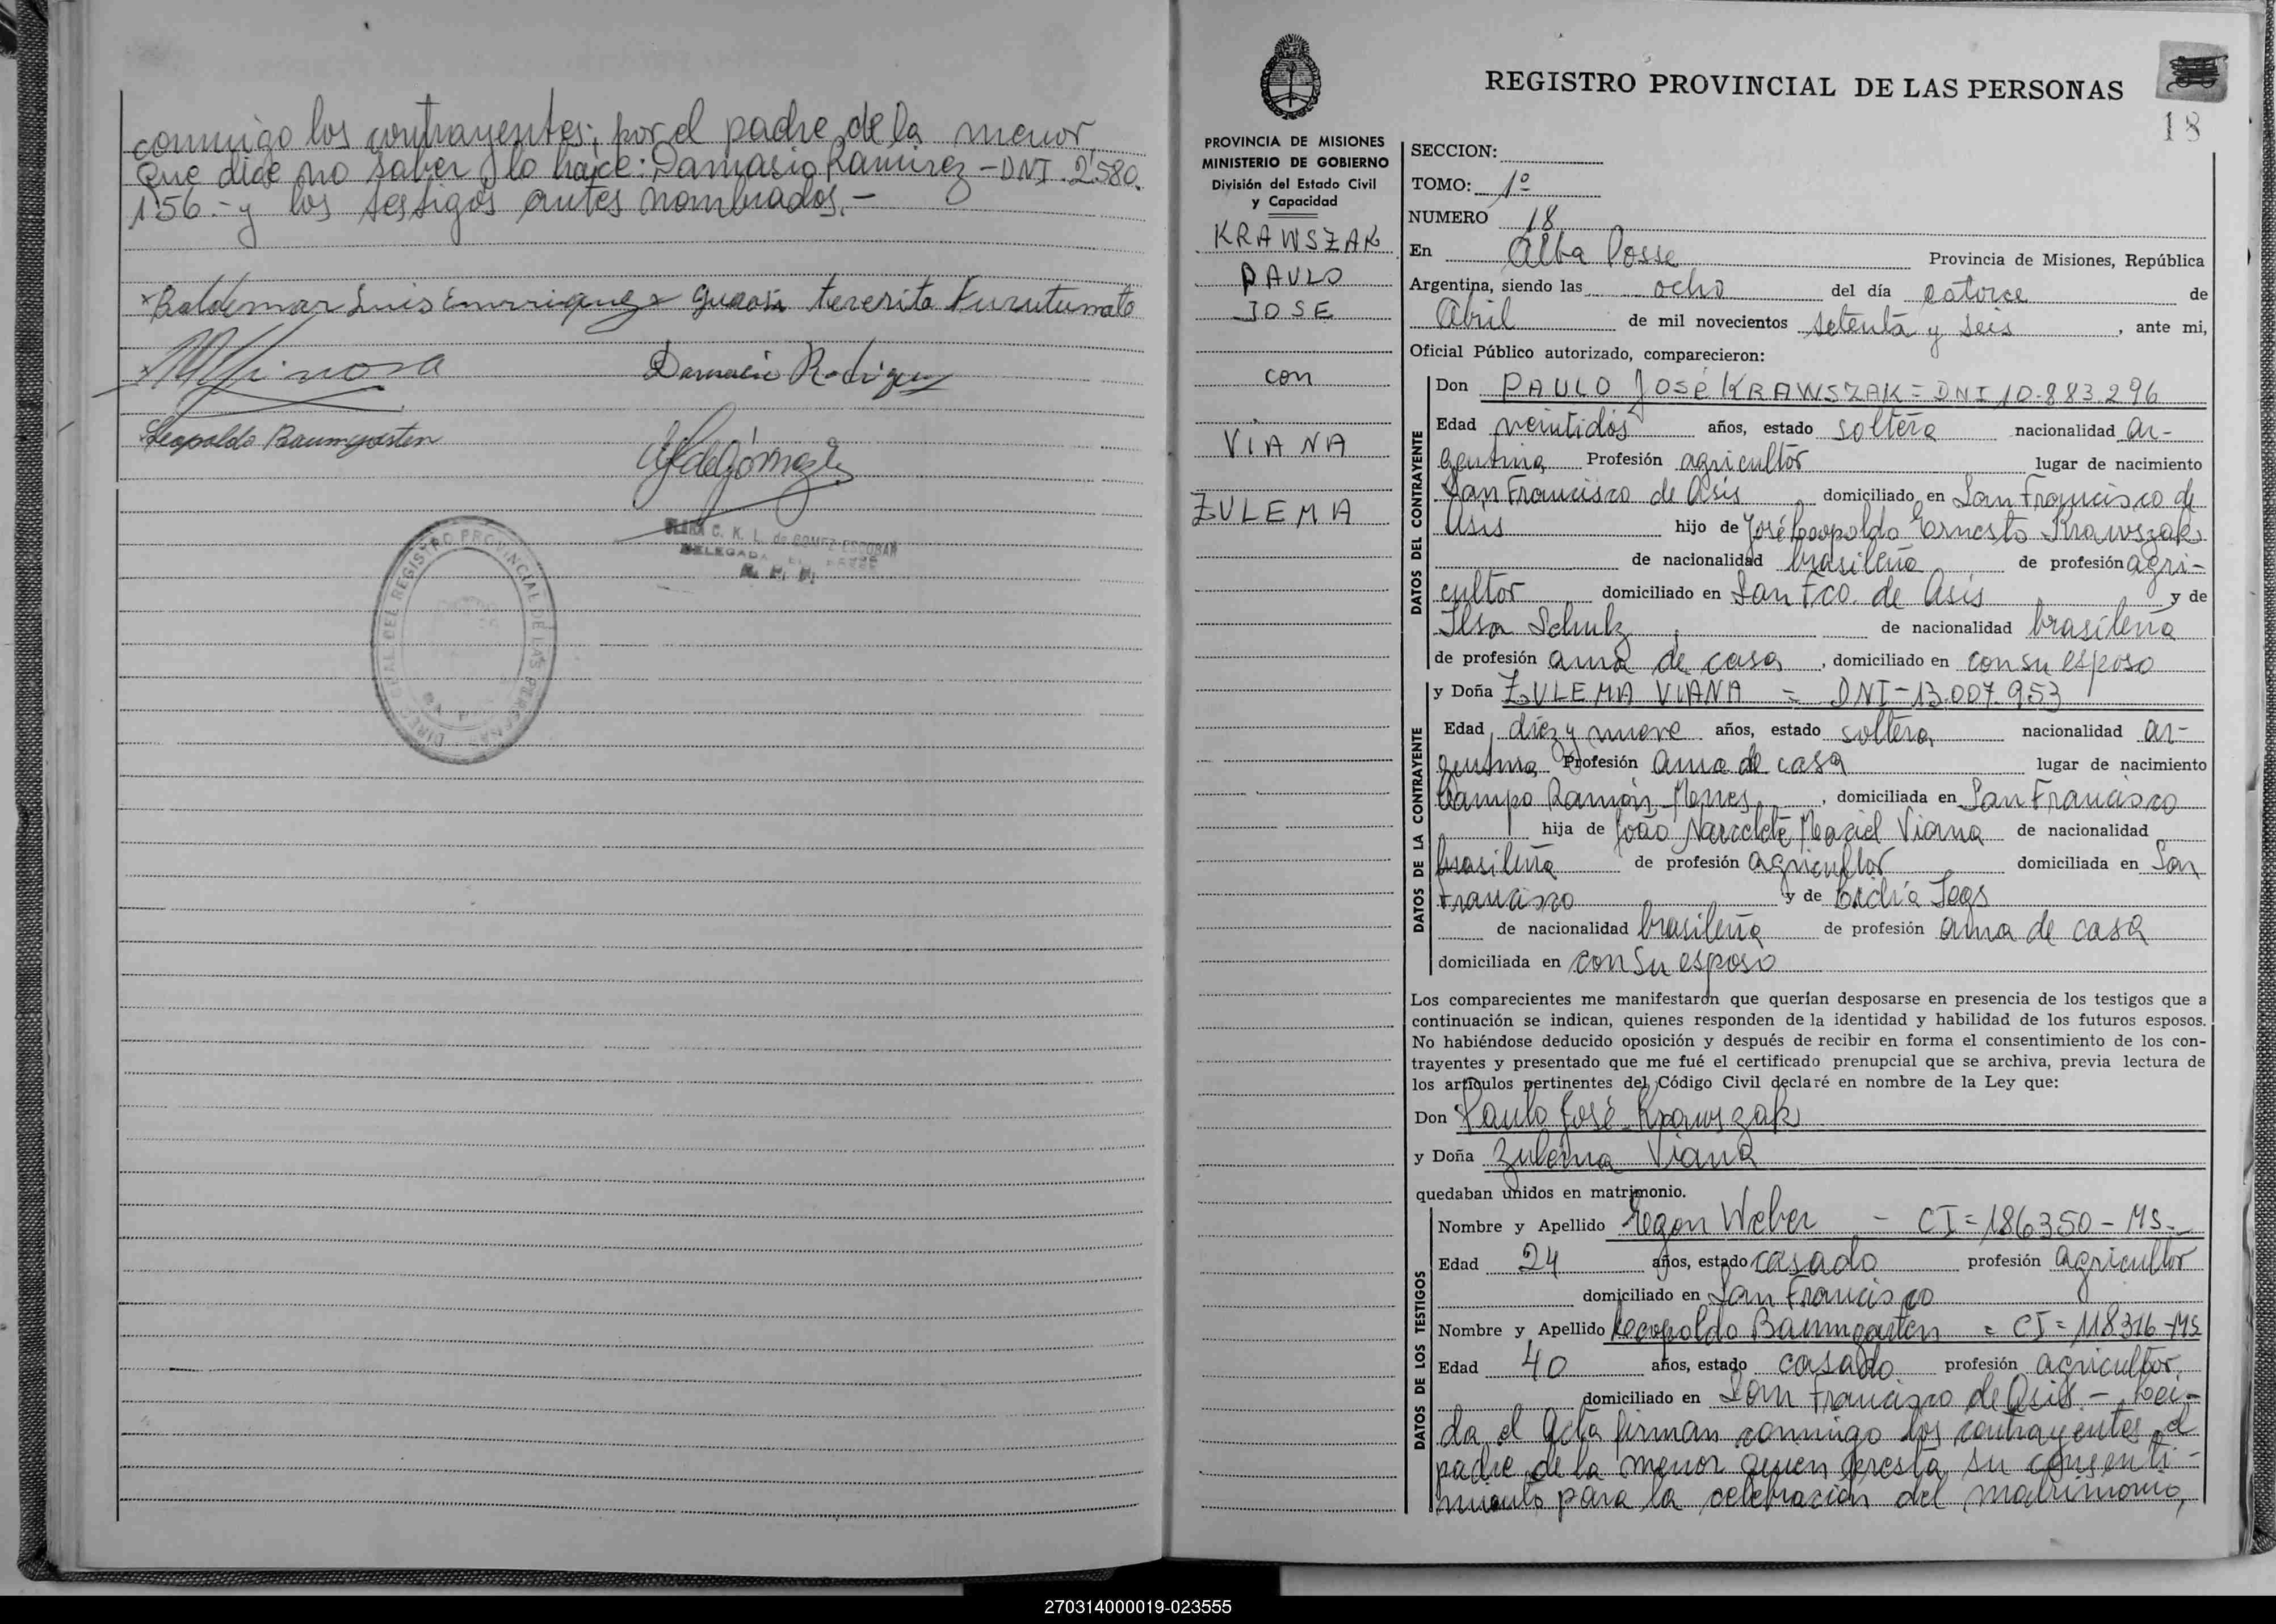 conmigo los contrayentes; por el padre de la menor,
que dice no saber, lo hace: Damasio Ramirez - DNI. 2.580.
156.- y los testigos antes nombrados.-
Baldemar Luis Enrriquez x tererita
Leopoldo Baumgarten
CLARA C. K. L. de GOMEZ ESCOBAR
DELEGADA
R. P. P.
REGISTRO PROVINCIAL DE LAS PERSONAS
REGISTRO PROVINCIAL DE LAS PERSONAS
18
PROVINCIA DE MISIONES
MINISTERIO DE GOBIERNO
División del Estado Civil
y Capacidad
KRAWSZAK
PAULO
JOSE
con
VIANA
ZULEMA
SECCION:
TOMO: 1º
NUMERO 18
En Alba Posse Provincia de Misiones, República
Argentina, siendo las ocho del día catorce de
Abril de mil novecientos setenta y seis, ante mi,
Oficial Público autorizado, comparecieron:
DATOS DEL CONTRAYENTE
Don PAULO JOSÉ KRAWSZAK = DNI 10.883.296
Edad veintidós años, estado soltero nacionalidad ar-
gentina Profesión agricultor lugar de nacimiento
San Francisco de Asís, domiciliado en San Francisco de
Asis hijo de José Leopoldo Ernesto Krawszak
de nacionalidad brasileña de profesión agri-
cultor domiciliado en San Fco. de Asís y de
Ilsa Schulz de nacionalidad brasileña
de profesión ama de casa, domiciliado en con su esposo
DATOS DE LA CONTRAYENTE
y Doña ZULEMA VIANA = DNI-13.007.953
Edad diez y nueve años, estado soltera nacionalidad ar-
gentina Profesión ama de casa lugar de nacimiento
Campo Ramón, Mnes, domiciliada en San Francisco
hija de João Maciel Viana de nacionalidad
brasileña de profesión agricultor domiciliada en San
Francisco y de
de nacionalidad brasileña de profesión ama de casa
domiciliada en con su esposo
Los comparecientes me manifestaron que querían desposarse en presencia de los testigos que a
continuación se indican, quienes responden de la identidad y habilidad de los futuros esposos.
No habiéndose deducido oposición y después de recibir en forma el consentimiento de los con-
trayentes y presentado que me fué el certificado prenupcial que se archiva, previa lectura de
los artículos pertinentes del Código Civil declaré en nombre de la Ley que:
Don Paulo José Krawszak
y Doña Zulema Viana
quedaban unidos en matrimonio.
DATOS DE LOS TESTIGOS
Nombre y Apellido Egon Weber - CI=186350-MS-
Edad 24 años, estado casado profesión agricultor
domiciliado en San Francisco
Nombre y Apellido Leopoldo Baumgarten = CI=118316-MS
Edad 40 años, estado casado profesión agricultor
domiciliado en San Francisco de Asis - Lei-
da el Acta firman conmigo los contrayentes, el
padre de la menor quien presta su consenti-
miento para la celebración del matrimonio,
270314000019-023555